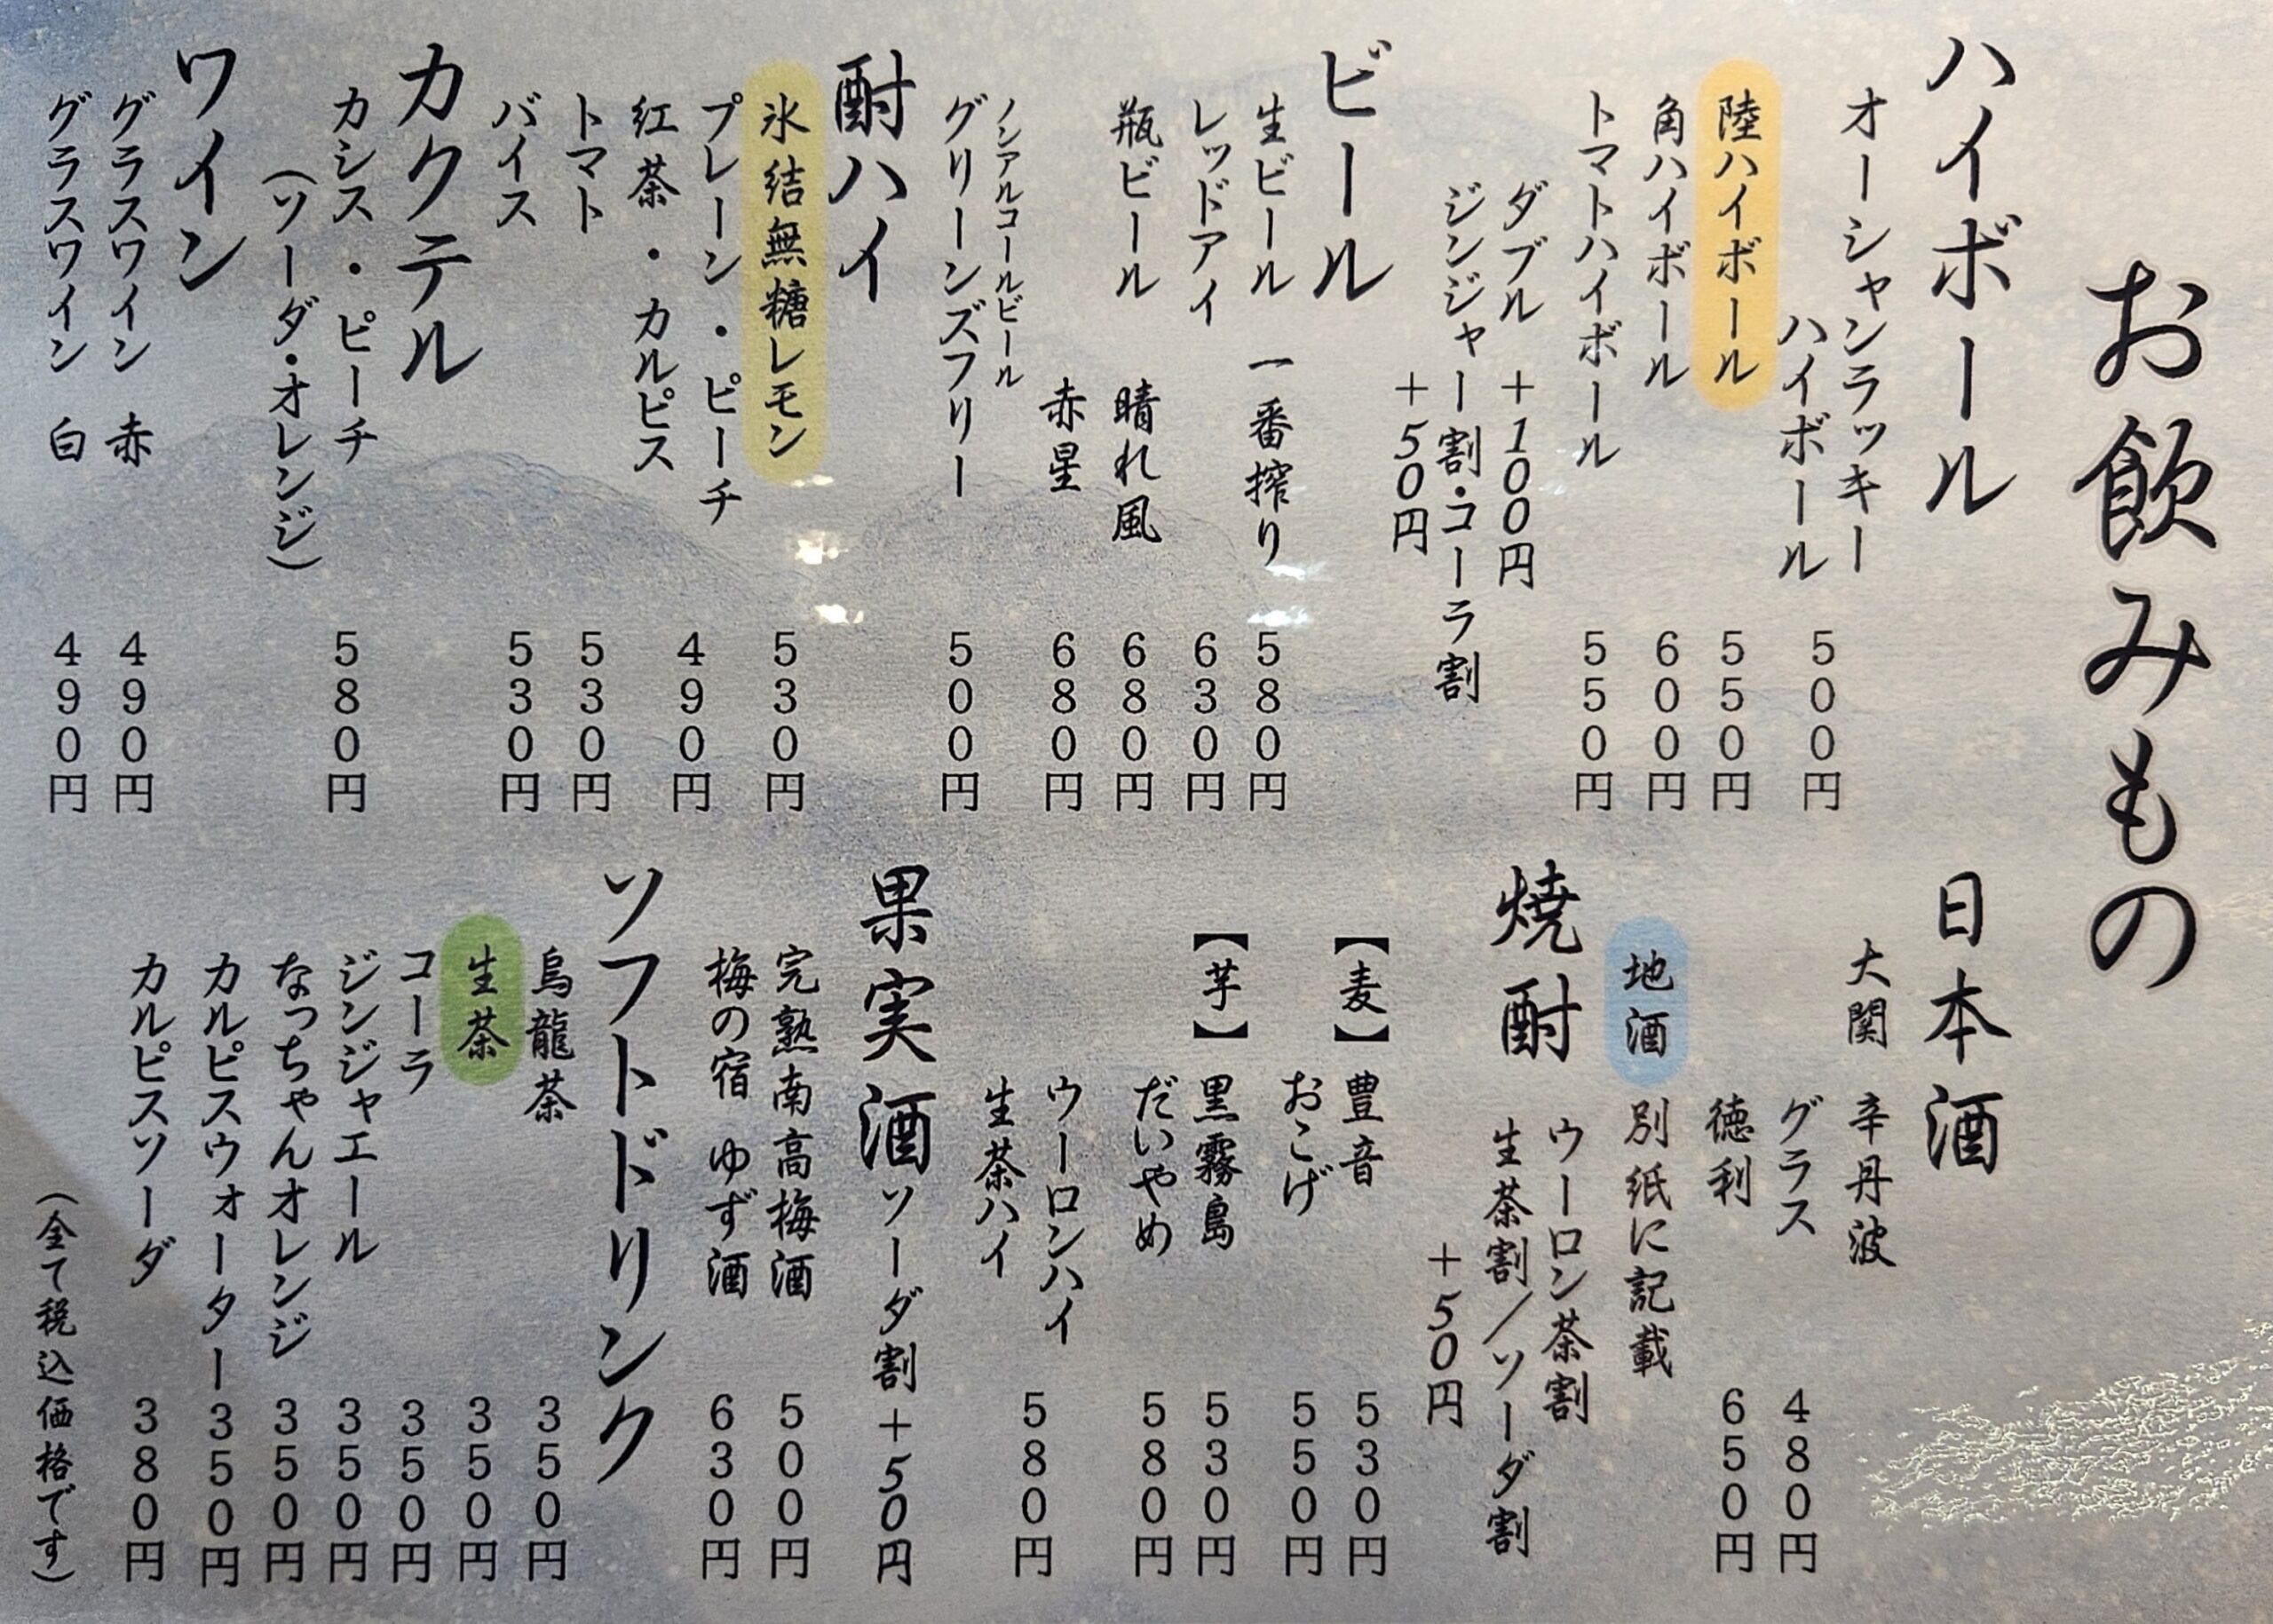 お飲みもの
ハイボール
オーシャンラッキー
ハイボール 500円
陸ハイボール 550円
角ハイボール 600円
トマトハイボール 550円
ダブル +100円
ジンジャー割・コーラ割
+50円
ビール
生ビール 一番搾り 580円
レッドアイ 630円
瓶ビール 晴れ風 680円
赤星 680円
ノンアルコールビール
グリーンズフリー 500円
酎ハイ
氷結無糖レモン 530円
プレーン・ピーチ
紅茶・カルピス 490円
トマト 530円
バイス 530円
カクテル
カシス・ピーチ 580円
(ソーダ・オレンジ)
ワイン
グラスワイン 赤 490円
グラスワイン 白 490円
日本酒
大関 辛丹波
グラス 480円
徳利 650円
地酒 別紙に記載
焼酎 ウーロン茶割
生茶割/ソーダ割
+50円
【麦】 豊音 530円
おこげ 550円
【芋】 黒霧島 530円
だいやめ 580円
ウーロンハイ
生茶ハイ 580円
果実酒 ソーダ割+50円
完熟南高梅酒 500円
梅の宿 ゆず酒 630円
ソフトドリンク
烏龍茶 350円
生茶 350円
コーラ 350円
ジンジャエール 350円
なっちゃんオレンジ 350円
カルピスウォーター 350円
カルピスソーダ 380円
(全て税込価格です)